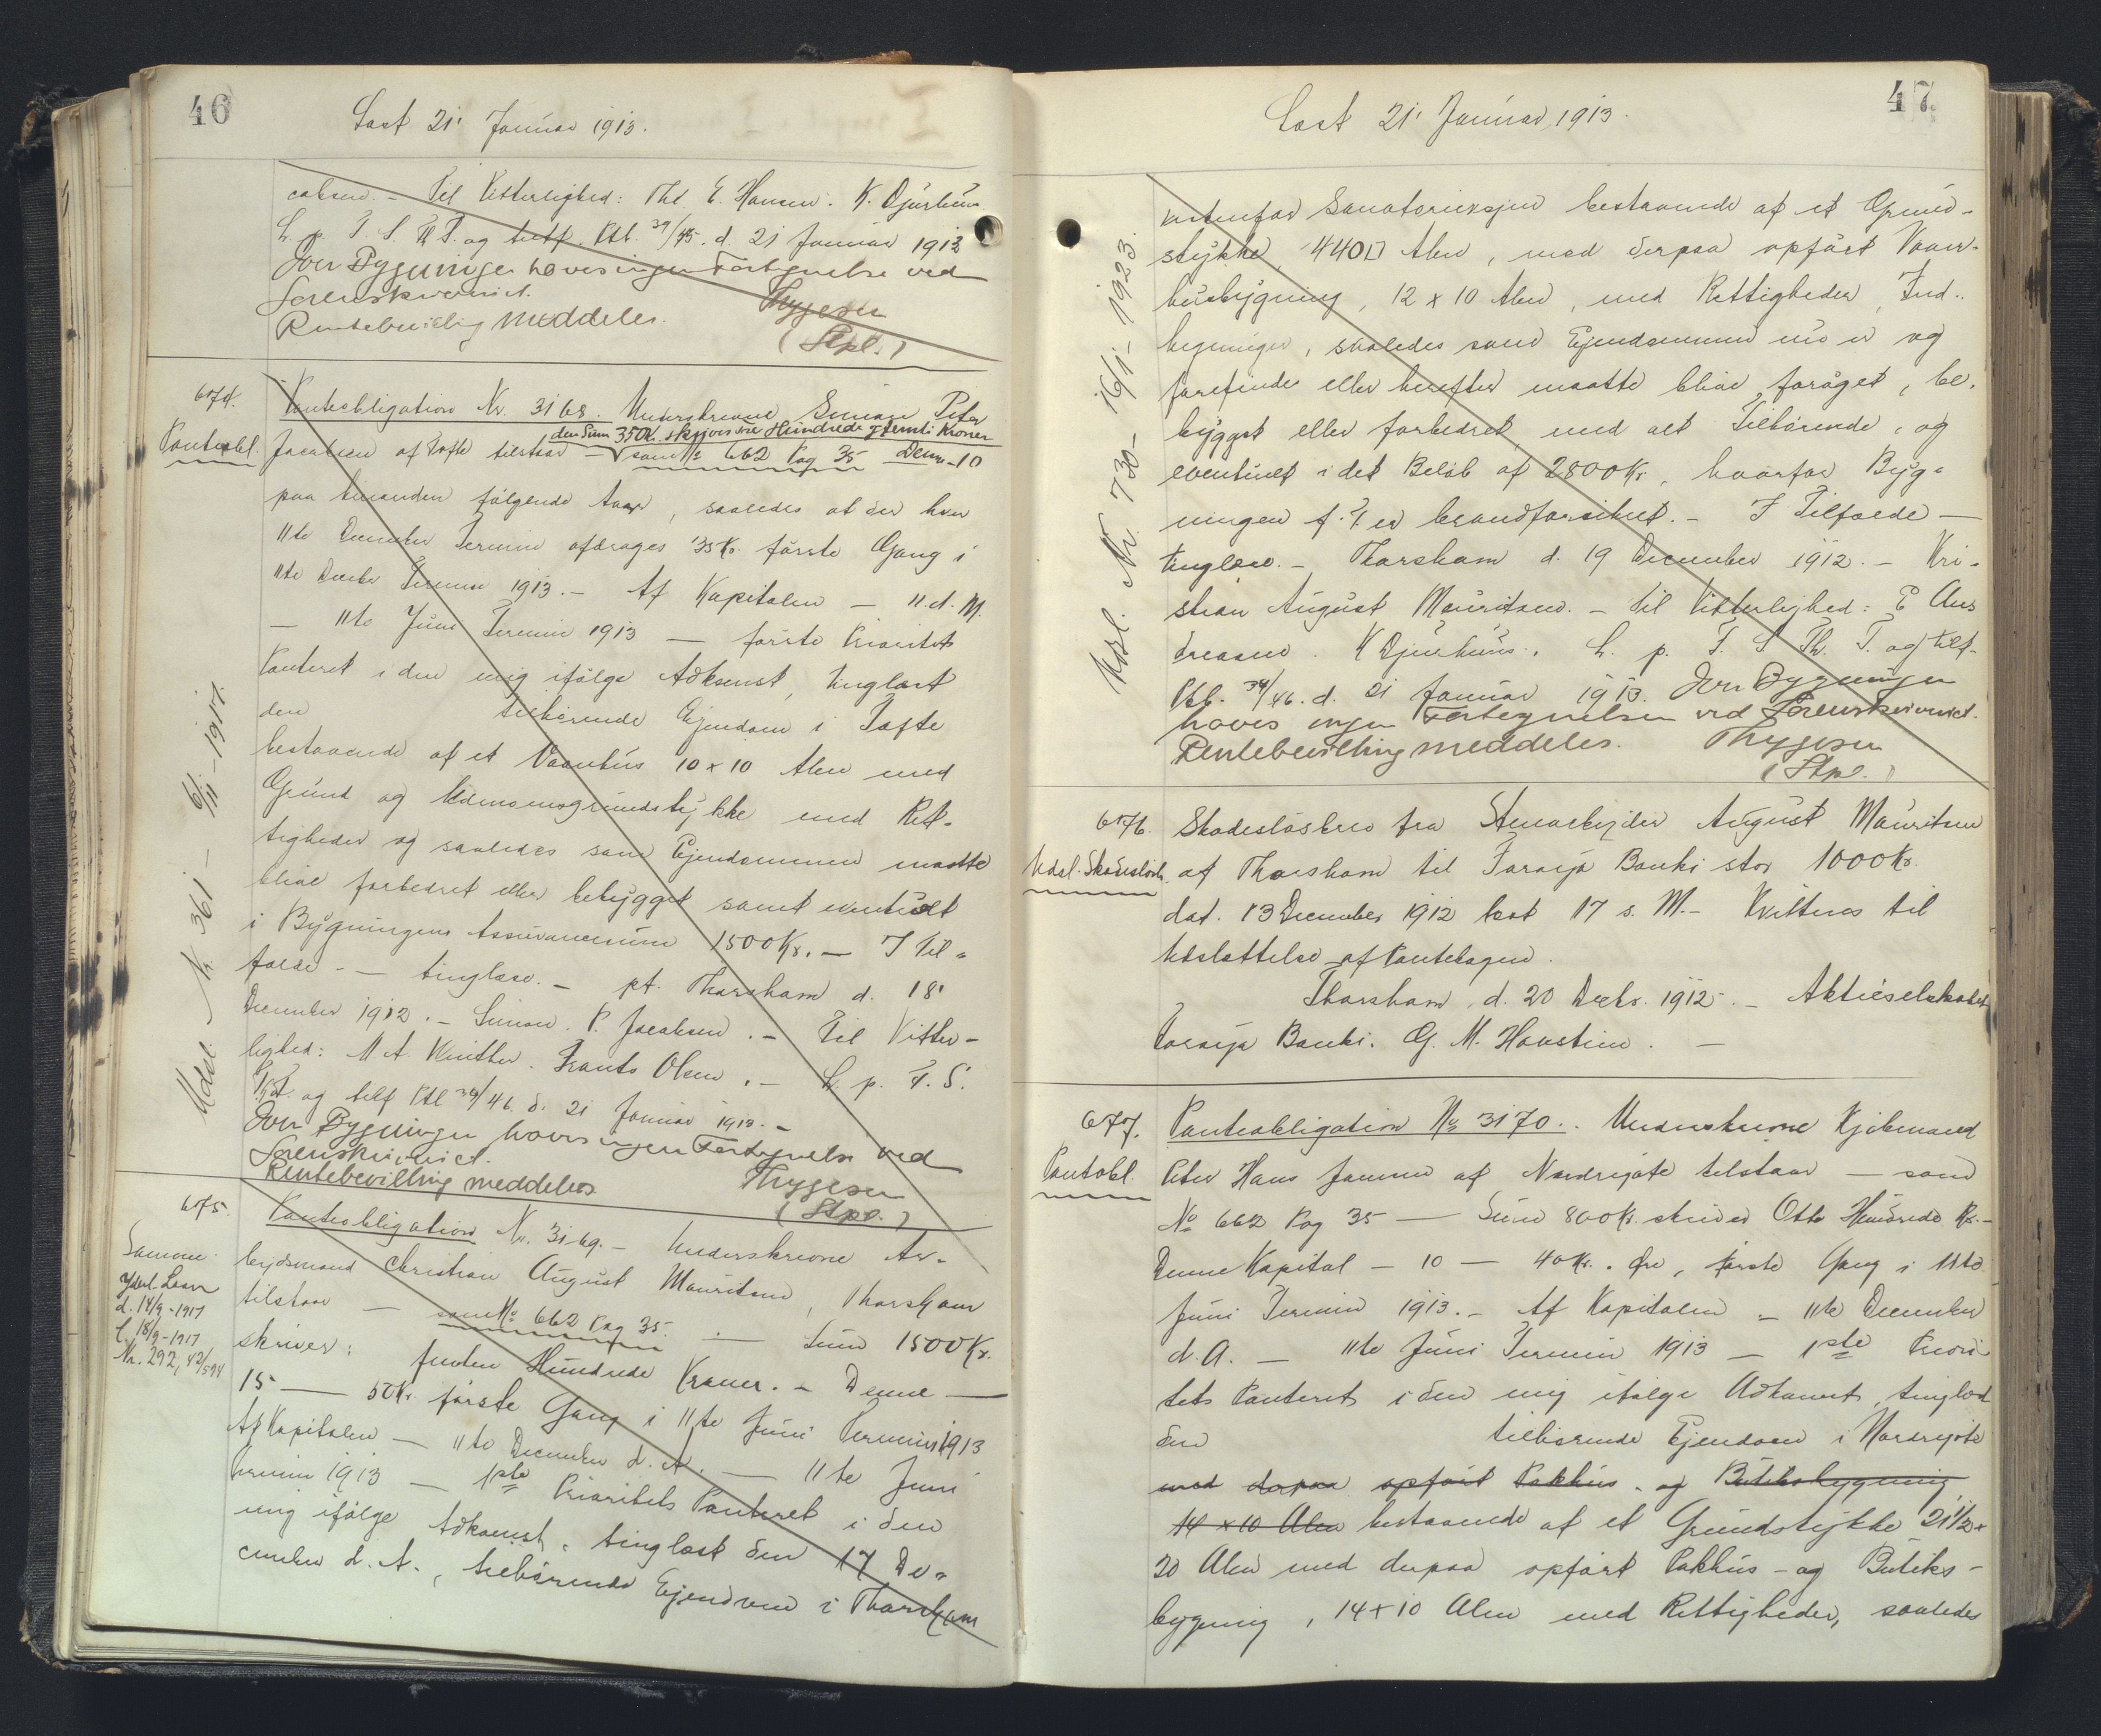 46
Læst 21' Januar 1913.
cobsen. - Til Vitterlighed: Thd. E. Hansen. K. Djurhuus
L. p. T. S. Th. T. og tilf. Ptb. 34/45. d. 21 Januar 1913
Over Bygninger haves ingen Fortegnelse ved
Sorenskriveriet.
Rentebevillig meddeles.
Thygesen
(Stpl.)
674.
Pantobl.
Panteobligation Nr. 3168. Underskrevne Simon Peter
den Sum 350Kr. skriver tre Hundrede og femti Kroner
Jacobsen af Tofte tilstaar - som No 662 Pag 35 Denne - 10
paa hinanden følgende Aar, saaledes at der hver
11te December Termin afdrages 35 Kr. første Gang i
11te Decbr Termin 1913. - Af Kapitalen - 11. d. M.
- 11te Juni Termin 1913 - første Prioritets
Panteret i den mig ifølge Adkomst, tinglæst
den tilhørende Ejendom i Tofte
bestaaende af et Vaanhus 10 x 10 Alen med
Grund og Udmarksgrundstykke med Ret-
tigheder og saaledes som Ejendommen maatte
blive forbedret eller bebygget samt eventuelt
i Bygningens Assurancesum 1500 Kr. - I Til-
fælde - - tinglæse. - pt. Thorshavn d. 18'
December 1912. - Simon P. Jacobsen. - Til Vitter-
lighed: M A Winther. Frants Olsen. - L. p. T. S.
Th. T. og tilf Ptb 34/46. d. 21 Januar 1913. -
Over Bygninger haves ingen Fortegnelse ved
Sorenskriveriet.
Rentebevilling meddeles.
Thygesen
(Stpl.)
Udsl. Nr. 361 - 6/11 - 1917.
675.
Samme
Yderl. Laan
d. 14/9 - 1917
l. 18/9 - 1917
Nr. 292, 42/594
Panteobligation Nr. 3169. - Underskrevne Ar-
bejdsmand Christian August Mauritsen, Thorshavn
tilstaar - som No 662 Pag 35. - Sum 1500 Kr.
skriver: femten Hundrede Kroner. - Denne -
15 - 50 Kr. første Gang i 11te Juni Termin 1913
Af Kapitalen - 11te December d. A. - 11te Juni
Termin 1913 - 1ste Prioritets Panteret i den
mig ifølge Adkomst, tinglæst den 17 De-
cember d. A., tilhørende Ejendom i Thorshavn
47
Læst 21' Januar 1913.
Udsl. Nr. 730 - 16/1 - 1923.
vestenfor Sanatorievejen bestaaende af et Grund-
stykke, 440 □ Alen, med derpaa opført Vaan-
husbygning, 12 x 10 Alen, med Rettigheder, Ind-
hegninger, saaledes som Ejendommen nu er og
forefindes eller herefter maatte blive forøget, be-
bygget eller forbedret, med alt Tilhørende, og
eventuelt i det Beløb af 2800 Kr., hvorfor Byg-
ningen f. T. er brandforsikret. - I Tilfælde -
tinglæse. - Thorshavn d. 19 December 1912. - Kri-
stian August Mauritsen. - Til Vitterlighed: E An-
dreasen. K Djurhuus. L. p. T. S Th. T. og tilf.
Ptb. 34/46. d. 21 Januar 1913. Over Bygninger
haves ingen Fortegnelse ved Sorenskriveriet.
Rentebevilling meddeles. Thygesen
(Stpl.)
676.
Udsl. Skadesløsb.
Skadesløsbrev fra Stenarbejder August Mauritsen
af Thorshavn til Føroya Banki stor 1000 Kr.
dat. 13 December 1912 læst 17 s. M. - Kvitteres til
Udslettelse af Pantebogen.
Thorshavn, d. 20 Decbr. 1912. - Aktieselskabet
Føroya Banki. G. M. Haustein. -
677.
Pantobl.
Panteobligation No 3170. Underskrevne Kjøbmand
Peter Hans Joensen af Nordregøte tilstaar - som
No 662 Pag 35 - Sum 800 Kr. skriver Otte Hundrede Kr. -
Denne Kapital - 10 - 40 Kr. Øre, første Gang i 11te
Juni Termin 1913. - Af Kapitalen - 11te December
d. A. - 11te Juni Termin 1913 - 1ste Priori-
tets Panteret i den mig ifølge Adkomst, tinglæst
den tilhørende Ejendom i Nordregøte
med derpaa opført Pakhus- og Butiksbygning
14 x 10 Alen bestaaende af et Grundstykke 21 1/2 x
20 Alen med derpaa opført Pakhus- og Butiks-
bygning, 14 x 10 Alen med Rettigheder, saaledes